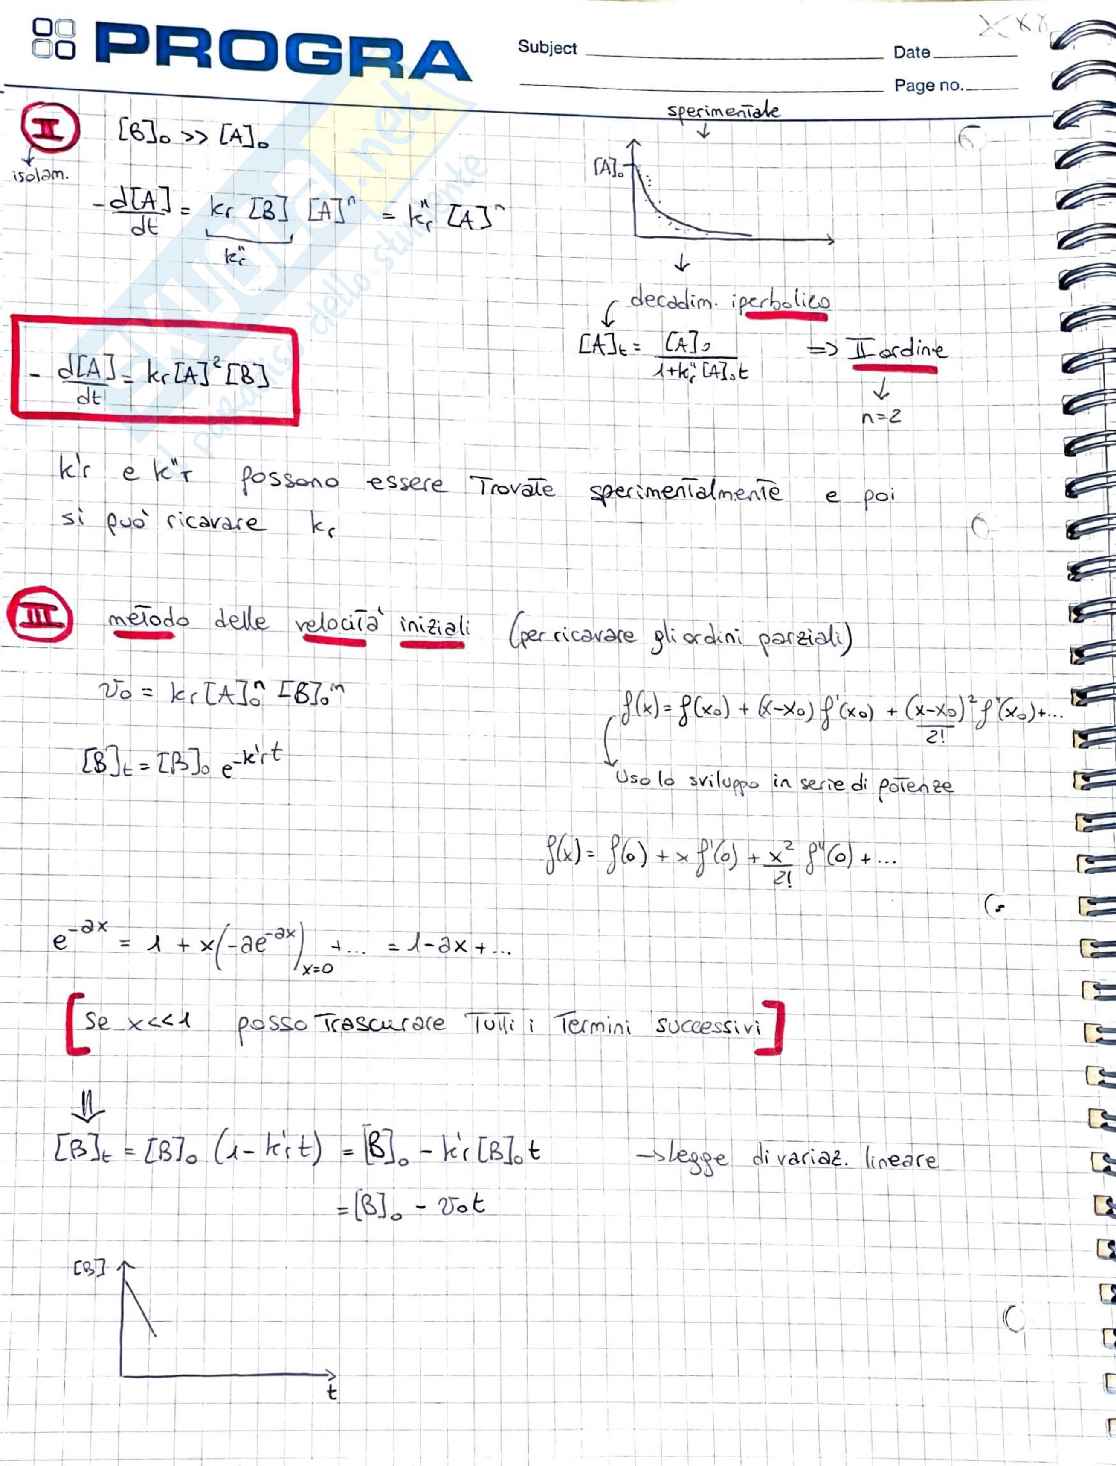 PROGRA
Subject
Date
Page no.
II
isolam.
[B]₀ >> [A]₀
-d[A]/dt = kr [B] [A]ⁿ = kr" [A]ⁿ
kr"
sperimentale
[A]₀
decadim. iperbolico
[A]t = [A]₀ / 1+kr"[A]₀t => II ordine
n=2
- d[A]/dt = kr[A]²[B]
k'r e k"r possono essere trovate sperimentalmente e poi
si può ricavare kr
III metodo delle velocità iniziali (per ricavare gli ordini parziali)
v₀ = kr[A]₀ⁿ [B]₀ᵐ
f(x) = f(x₀) + (x-x₀) f'(x₀) + (x-x₀)²/2! f"(x₀)+...
[B]t = [B]₀ e^-k'rt
Uso lo sviluppo in serie di potenze
f(x) = f(0) + x f'(0) + x²/2! f"(0) + ...
e^-ax = 1 + x(-ae^-ax)x=0 + ... = 1-ax+...
[Se x<<1 posso trascurare tutti i termini successivi]
[B]t = [B]₀ (1-k'rt) = [B]₀ - k'r[B]₀t → legge di variaz. lineare
= [B]₀ - v₀t
[B]
t